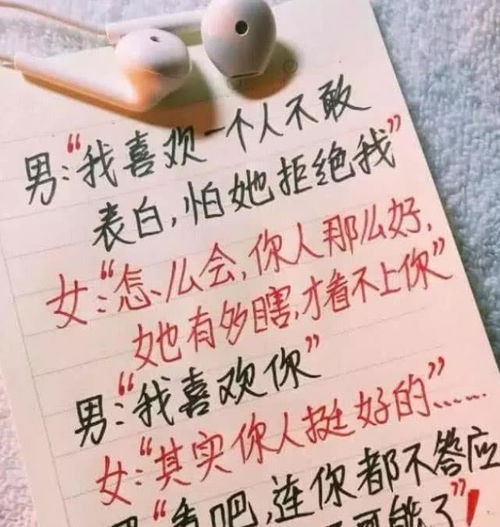 男:“我喜欢一个人不敢
表白,怕她拒绝我”
女:“怎么会,你人那么好,
她有多瞎,才看不上你”
男:“我喜欢你”
女:“其实你人挺好的”......
男:“看吧,连你都不答应
可能了”!